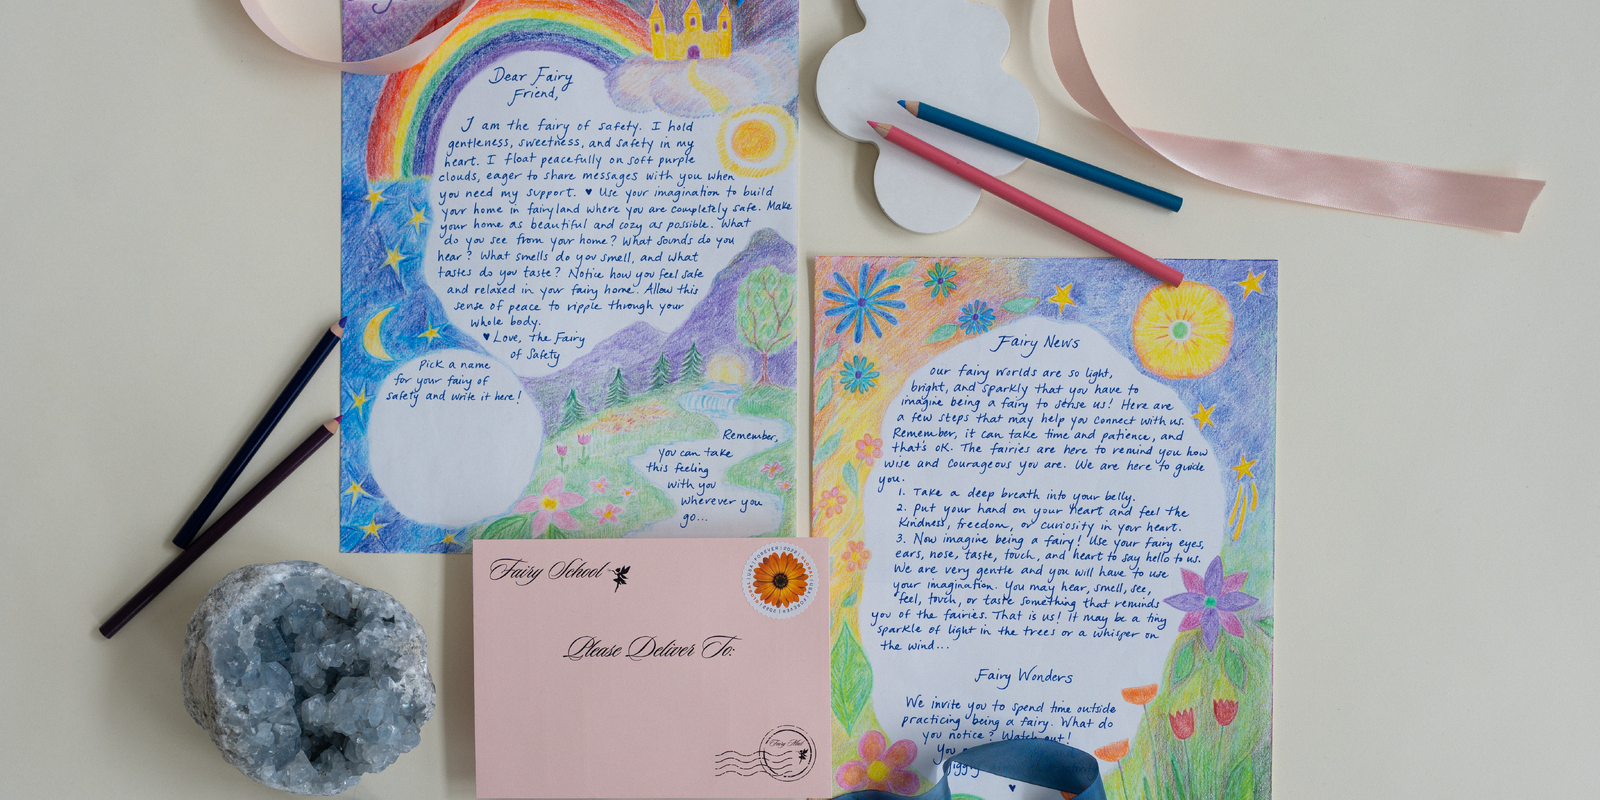 Dear Fairy
Friend,
I am the fairy of safety. I hold
gentleness, sweetness, and safety in my
heart. I float peacefully on soft purple
clouds, eager to share messages with you when
you need my support. ♥ Use your imagination to build
your home in fairyland where you are completely safe. Make
your home as beautiful and cozy as possible. What
do you see from your home? What sounds do you
hear? What smells do you smell, and what
tastes do you taste? Notice how you feel safe
and relaxed in your fairy home. Allow this
sense of peace to ripple through your
whole body.
♥ Love, the Fairy
of Safety
Pick a name
for your fairy of
safety and write it here!
Remember,
you can take
this feeling
with you
wherever you
go...
Fairy School
FOREVER 2020
Please Deliver To:
Fairy Mail
Fairy News
Our fairy worlds are so light,
bright, and sparkly that you have to
imagine being a fairy to sense us! Here are
a few steps that may help you connect with us.
Remember, it can take time and patience, and
that's OK. The fairies are here to remind you how
wise and courageous you are. We are here to guide
you.
1. Take a deep breath into your belly.
2. Put your hand on your heart and feel the
kindness, freedom, or curiosity in your heart.
3. Now imagine being a fairy! Use your fairy eyes,
ears, nose, taste, touch, and heart to say hello to us.
We are very gentle and you will have to use
your imagination. You may hear, smell, see,
feel, touch, or taste something that reminds
you of the fairies. That is us! It may be a tiny
sparkle of light in the trees or a whisper on
the wind...
Fairy Wonders
We invite you to spend time outside
practicing being a fairy. What do
you notice? Watch out!
You